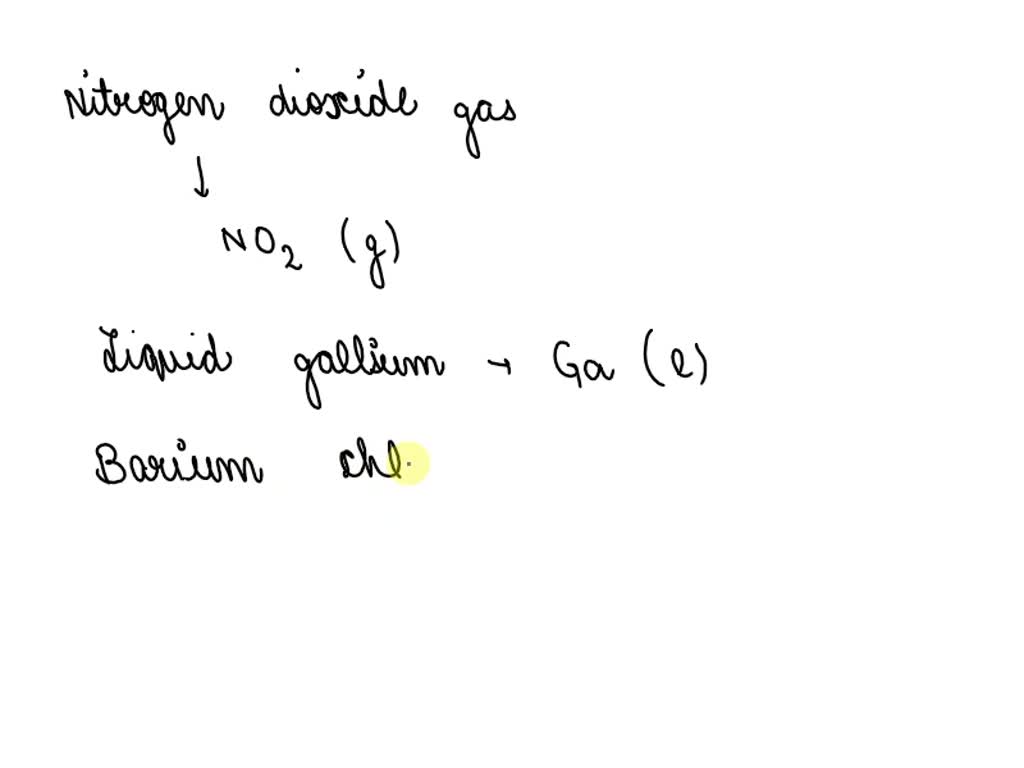 Nitrogen dioxide gas
↓
NO₂ (g)
Liquid gallium → Ga (l)
Barium chl